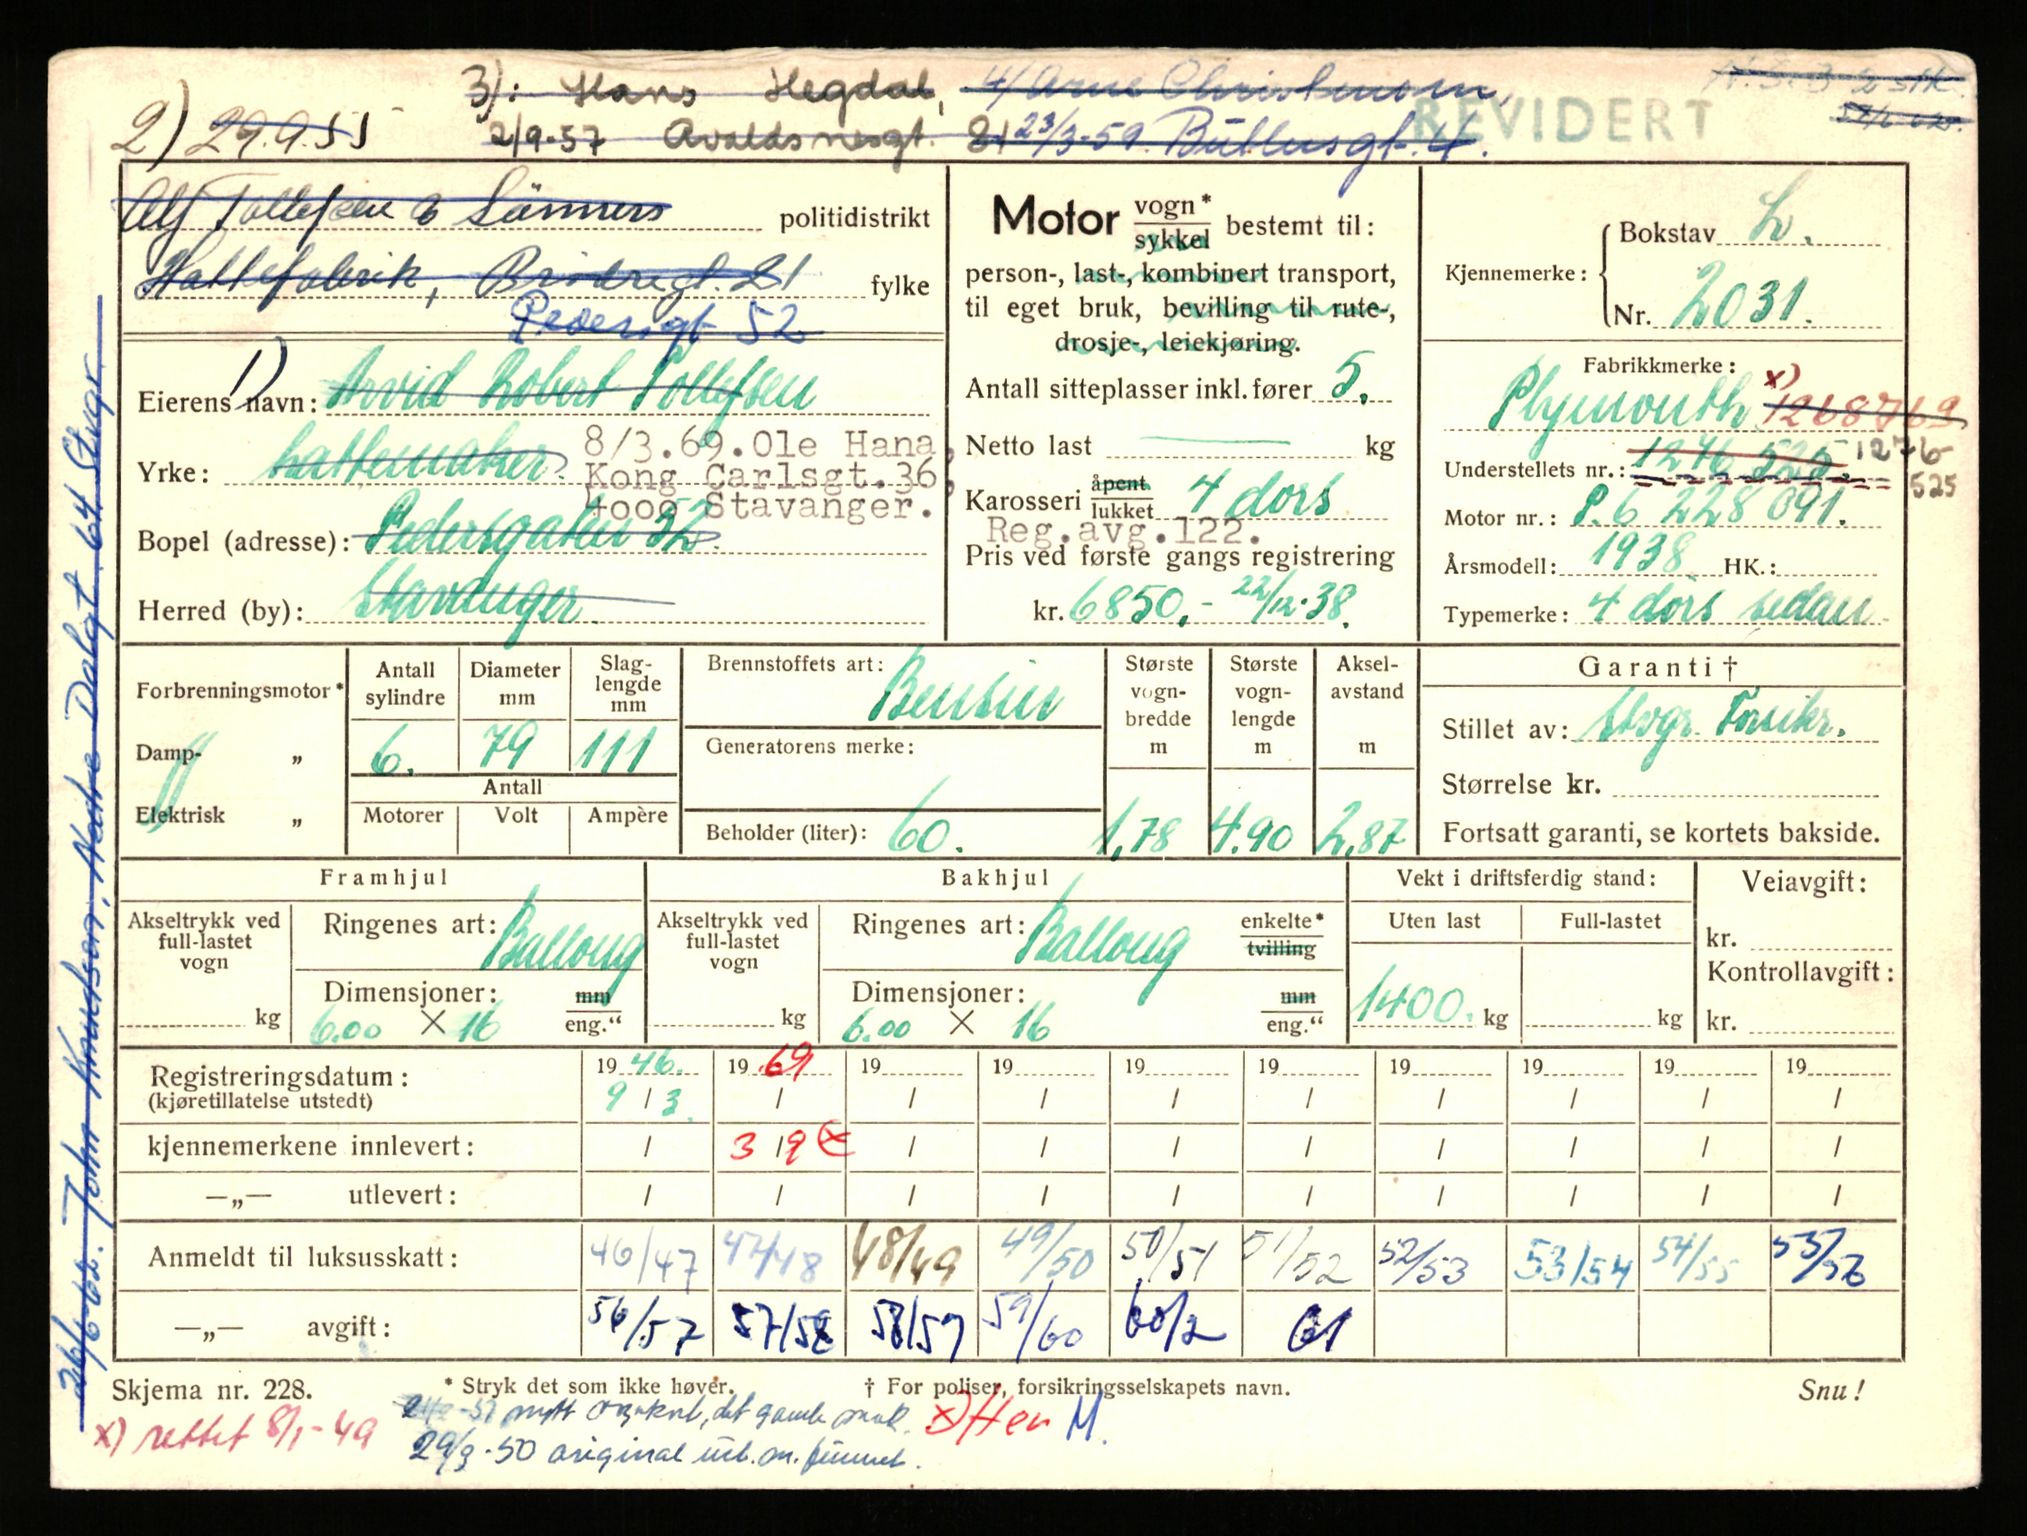 3): Hans Hegdal, 4/ Arne Christensen,
2) 29.9.55 2/9-57 Avaldsnesgt. 21 23/3-59. Bullusgt. 4.
REVIDERT
Alf Tollefsen & Sönners politidistrikt
Hattefabrik, Brødregt. 21 fylke
Pedersgt 52
1)
Eierens navn: Arvid Robert Tollefsen
Yrke: hattemaker.
8/3.69.Ole Hana,
Kong Carlsgt.36,
4000 Stavanger.
Bopel (adresse): Pedersgaten 52.
Herred (by): Stavanger.
Motor vogn* sykkel bestemt til:
person-, last-, kombinert transport,
til eget bruk, bevilling til rute-,
drosje-, leiekjøring.
Antall sitteplasser inkl. fører 5.
Netto last — kg
Karosseri åpent. lukket 4 dørs
Reg.avg.122.
Pris ved første gangs registrering
kr. 6850,- 22/12-38.
Kjennemerke: Bokstav L.
Nr. 2031.
Fabrikkmerke:
x)
Plymouth 1268769
Understellets nr.: 1276 525. 1276
525
Motor nr.: P.6 228 091.
Årsmodell: 1938 HK.:
Typemerke: 4 dørs sedan
Forbrenningsmotor*
Damp- „
Elektrisk „
Antall sylindre
6.
Diameter mm
79
Slag-lengde mm
111
Antall
Motorer Volt Ampère
Brennstoffets art: Bensin
Generatorens merke:
Beholder (liter): 60.
Største vogn-bredde m
1,78
Største vogn-lengde m
4.90
Aksel-avstand m
2,87
Garanti †
Stillet av: Stvgr. Forsikr.
Størrelse kr.
Fortsatt garanti, se kortets bakside.
Framhjul
Akseltrykk ved full-lastet vogn
kg
Ringenes art: Ballong
Dimensjoner: mm
6.00 × 16 eng."
Bakhjul
Akseltrykk ved full-lastet vogn
kg
Ringenes art: Ballong enkelte* tvilling
Dimensjoner: mm
6.00 × 16 eng."
Vekt i driftsferdig stand:
Uten last Full-lastet
1400. kg kg
Veiavgift:
kr.
Kontrollavgift:
kr.
Registreringsdatum: 19 46. 19 69 19 19 19 19 19 19 19 19
(kjøretillatelse utstedt) 9 / 3. / / / / / / / / /
kjennemerkene innlevert: / 3 / 9 x / / / / / / / /
—„— utlevert: / / / / / / / / / /
Anmeldt til luksusskatt: 46/47 47/48 48/49 49/50 50/51 51/52 52/53 53/54 54/55 55/56
—„— avgift: 56/57 57/58 58/59 59/60 60/2 61
Skjema nr. 228. * Stryk det som ikke høver. † For poliser, forsikringsselskapets navn. Snu!
x) rettet 8/1-49
nytt vognkort, det gamle
x) Hen M.
29/3-50 original funnet.
26/6-62. John Knudsen, Nedre Dalgt. 64 Stvgr